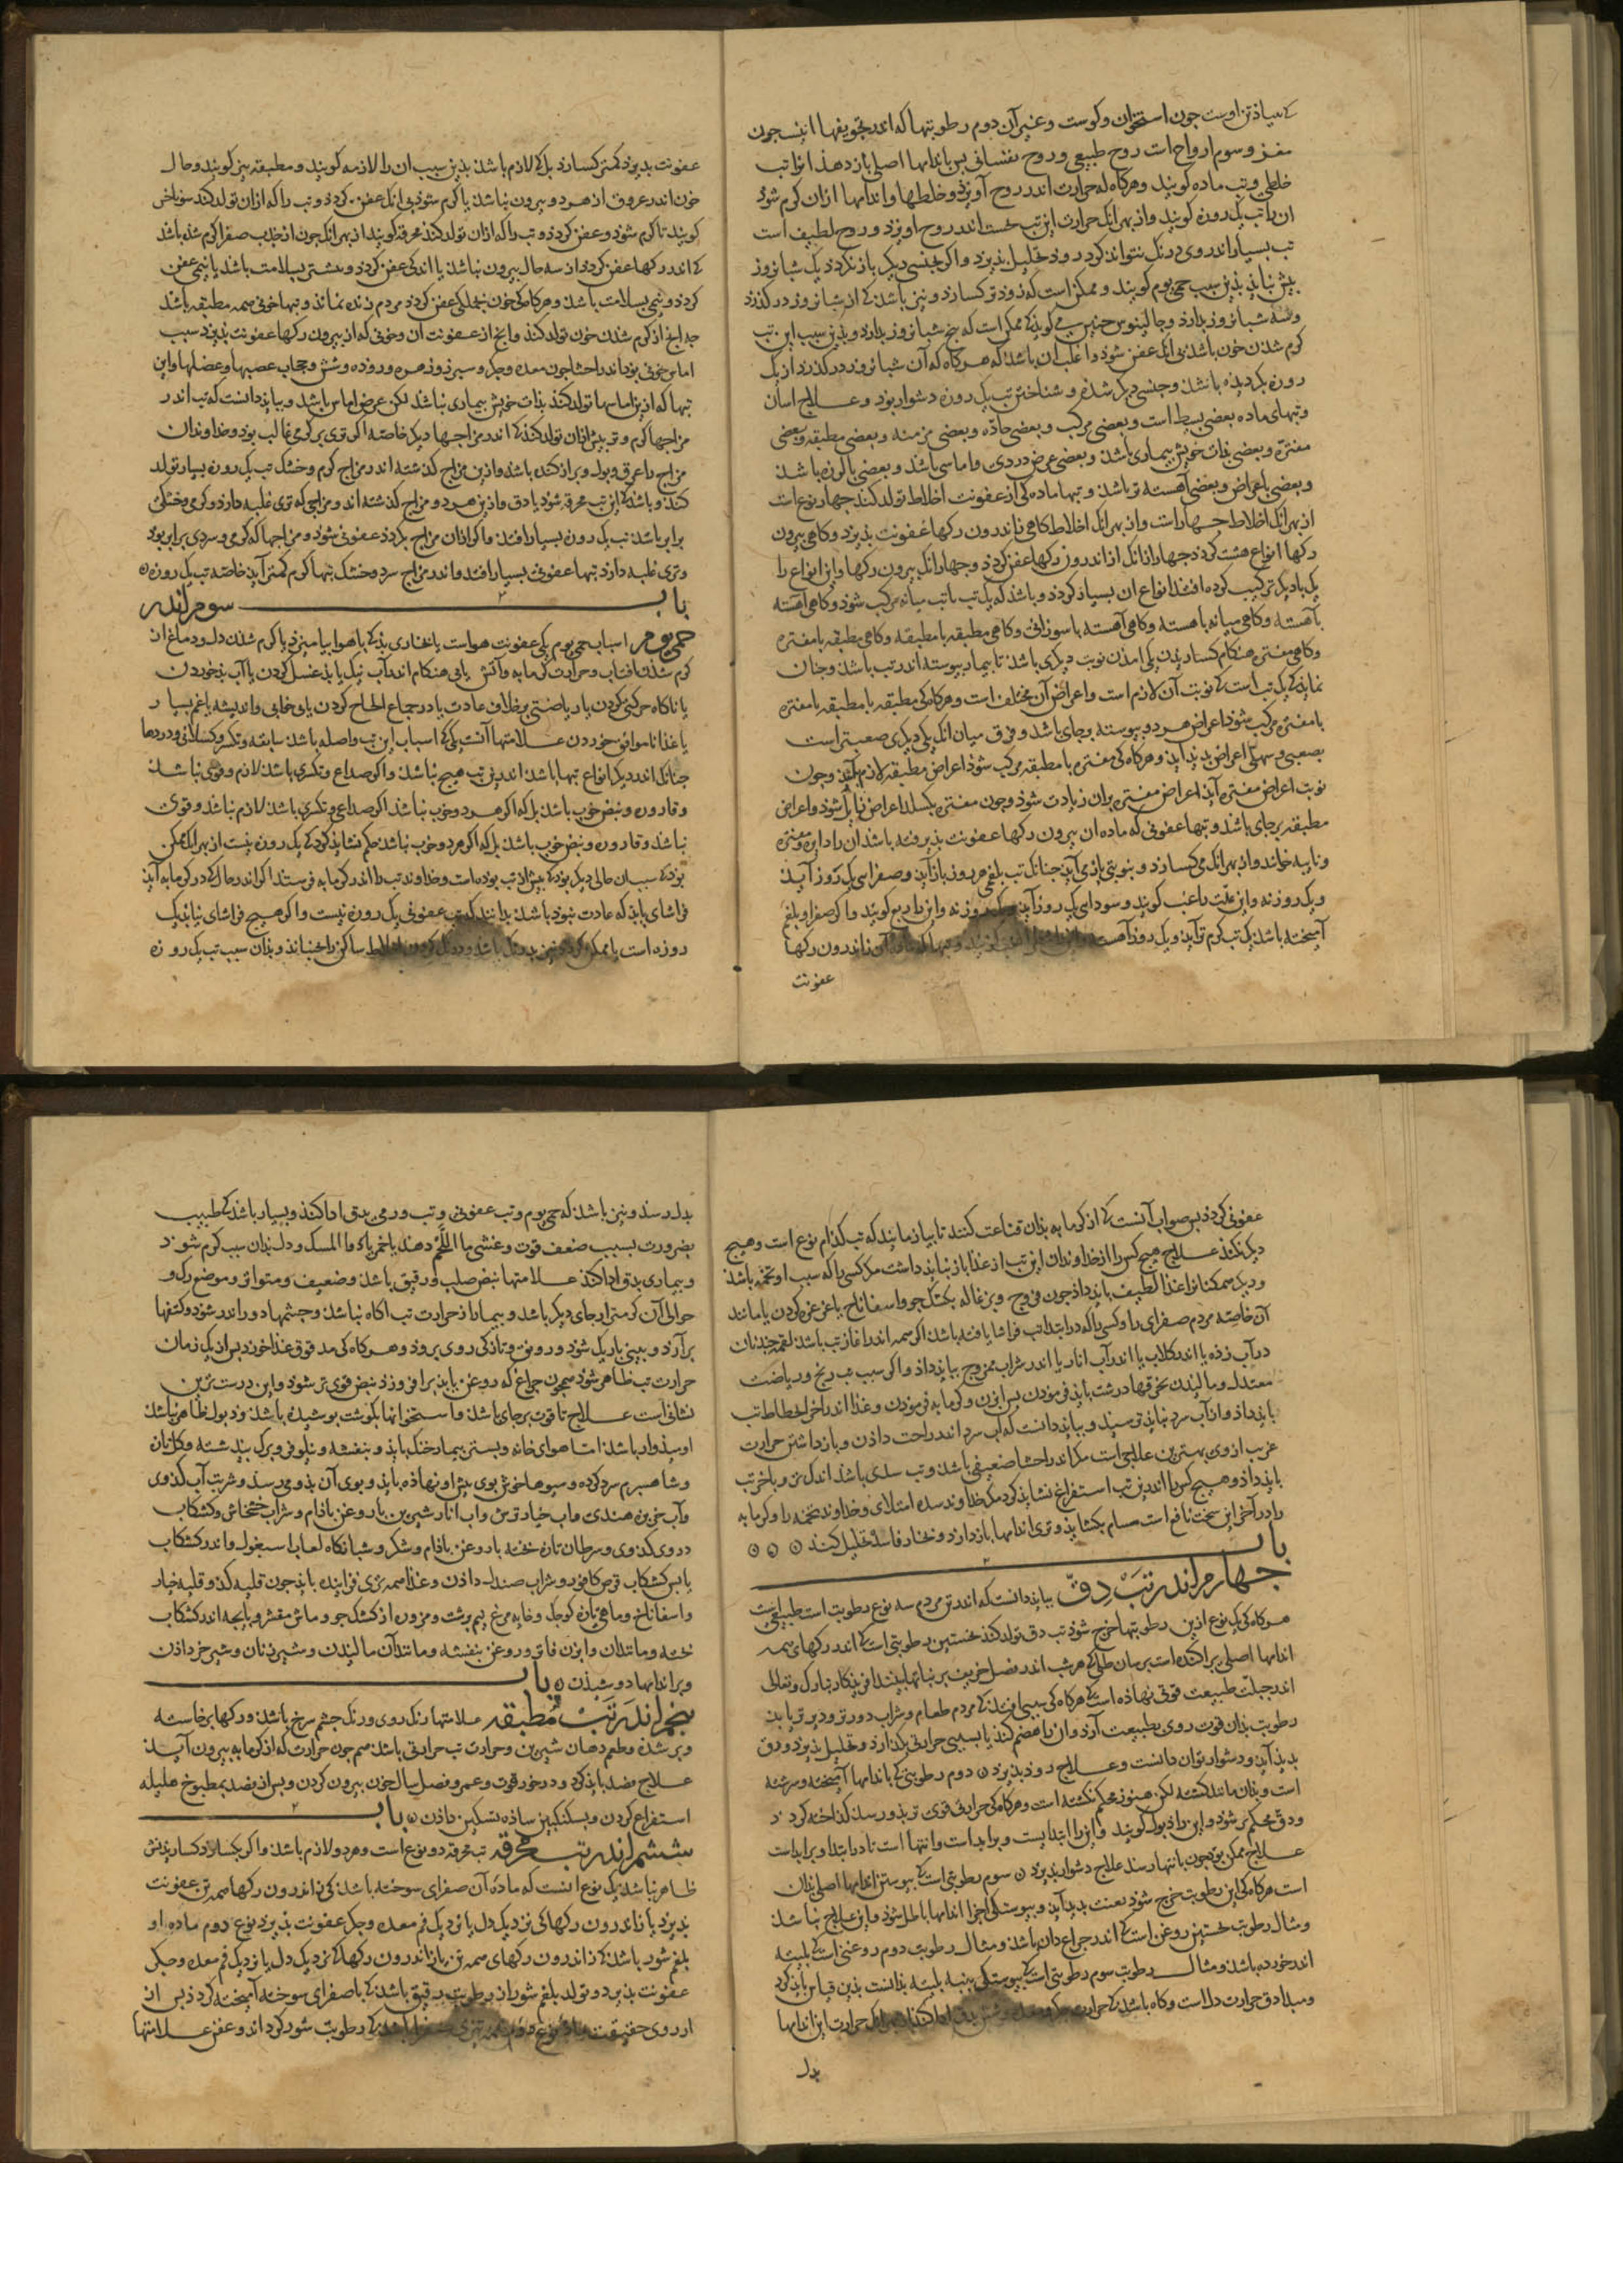 که بنیاذ تن اوست جون استخوان و کوشت و غیر آن دوم رطوبتها که اندر تجویفها است جون
مغز و سوم ارواح است روح طبیعی و روح نفسانی بس باندامها اصلی باز دهذ انرا تب
خلطی و تب ماده کویند و هرکاه که حرارت اندر روح آویزذ و خلطها و اندامها ازان کرم شوذ
ان را تب یک روزه کویند و از بهر انک حرارت این تب نخست اندر روح اویزذ و روح لطیف است
تب بسیار اندر وی درنک نتواند کرد زوذ تحلیل بذیرذ و اکر بجنسی دیکر باز نکردذ یک شبانروز
بیش نبایذ بذین سبب حمی یوم کویند و ممکن است که زوذتر کسارذ و نیز باشذ که از شبانروز در کذرذ
و سه شبانروز بدارد و جالینوس جنین می کویذ که ممکن است که بنج شبانروز بدارد و بذین سبب این تب
کرم شدن خون باشذ بی انک عفن شوذ و اغلب ان باشذ که هرکاه که آن شبانروز در کذرذ از یک
روزه بکردیذه باشذ و جنسی دیکر شده و شناختن تب یک روزه دشوار بوذ و علاج اسان
و تبهای ماده بعضی بسیط است و بعضی مرکب و بعضی حاده و بعضی مزمنه و بعضی مطبقه و بعضی
مفتره و بعضی بذات خویش بیماری باشذ و بعضی عرض دردی و اماسی باشذ و بعضی با لرزه باشذ
و بعضی با عراض و بعضی آهسته تر باشذ و تبها ماده کی از عفونت اخلاط تولد کنذ جهار نوع است
از بهر انک اخلاط جهار است و از بهر انک اخلاط کاهی ز اندرون رکها عفونت بذیرذ و کاهی بیرون
رکها انواع هشت کردذ جهار ازانک از اندرون رکها عفن کردذ و جهار انک بیرون رکها و این انواع را
یک با دیکر ترکیب کرده افتذ انواع ان بسیار کردذ و باشذ که یک تب با تب میانه مرکب شوذ و کاهی آهسته
با هسته و کاهی میانه باهسته و کاهی آهسته با سوزانی و کاهی مطبقه با مطبقه و کاهی مطبقه با مفتره
و کاهی مفتره هنکام کساریدن یکی امذن نوبت دیکری باشذ تا بیمار بیوسته اندر تب باشذ و جنان
نمایذ که یک تب است که نوبت آن لازم است و اعراض آن مختلف است و هرکاه کی مطبقه با مطبقه یا مفتره
با مفتره مرکب شوذ اعراض هر دو بیوسته بر جای باشذ و فرق میان انک یکی دیکری صعبتر است
بصعبی و سهلی اعراض بدید آید و هرکاه کی مفتره با مطبقه مرکب شوذ اعراض مطبقه لازم باشذ و جون
نوبت اعراض مفتره آیذ اعراض مفتره بران زیادت شوذ و جون مفتره بکسلذ اعراض زایل شوذ و اعراض
مطبقه بر جای باشذ و تبها عفونی که ماده ان بیرون رکها عفونت بذیرفته باشذ ان را دایره و مفتره
و نایبه خوانند و از بهر انک می کسارذ و بنوبتی باز می آیذ جنانک تب بلغمی هر روز باز آیذ و صفرایی یک روز آیذ
و یک روز نه و این علت را غب کویند و سودایی یک روز آیذ و یک روز نه و این را ربع کویند و اکر صفرا و بلغم
آمیخته باشذ یک تب کرم تر آیذ و یک روز آهسته رکها
عفونت
عفونت بذیرذ کمتر کسارذ بل که لازم باشذ بذین سبب ان را لازمه کویند و مطبقه نیز کویند و حال
خون اندر عروق از هر دو بیرون نباشذ یا کرم شوذ بی انک عفن کردذ و تب را که ازان تولد کنذ سوناخس
کویند تا کرم شوذ و عفن کردذ و تب را که ازان تولد کنذ محرقه کویند از بهر انک جون از جذب صفرا کرم شذه باشذ
که اندر رکها عفن کردذ از سه حال بیرون نباشذ یا اندکی عفن کردذ و بیشتر بسلامت باشذ یا نیمی عفن
کردذ و نیمی بسلامت باشذ و هرکاه کی خون بجملکی عفن کردذ مردم زنده نماند و تبها خونی همه مطبقه باشذ
جه انج از کرم شذن خون تولد کنذ و انج از عفونت ان و خونی که از بیرون رکها عفونت بذیرذ سبب
اماس خونی بوذ اندر احشا جون معده و جکر و سبرز و زهره و روده و شش و حجاب عصبها و عضلها و این
تبها که ازین اماسها تولد کنذ بذات خویش بیماری نباشذ لکن عرض اماس باشذ و ببایذ دانست که تب اندر
مزاجها کرم و تر بیش ازان تولد کنذ که اندر مزاجها دیکر خاصه اکر تری بر کرمی غالب بوذ و خداوندان
مزاج را عرق و بول و براز کنده باشذ و ازین مزاج کذشته اندر مزاج کرم و خشک تب یک روزه بسیار تولد
کنذ و باشذ که این تب محرقه شوذ یا دق و ازین هر دو مزاج کذشته اندر مزاجی که تری غلبه دارذ و کرمی و خشکی
برابر باشذ تب یک روزه بسیار افتذ و اکر ازان مزاج بکردذ عفونی شوذ و مزاجها که کرمی و سردی برابر بوذ
و تری غلبه دارذ تبها عفونی بسیار افتذ و اندر مزاج سرد و خشک تبها کرم کمتر آیذ خاصه تب یک روزه
باب سوم اندر
حمی یوم اسباب حمی یوم یکی عفونت هواست یا بخاری بذ که با هوا بیامیزذ یا کرم شذن دل و دماغ از
کرم شذن افتاب و حرارت کرمابه و آتش یا بی هنکام اندر آب نیک یا بذ غسل کردن یا آب بذ خوردن
یا ناکاه حرکتی کردن یا ریاضتی بر خلاف عادت یا در جماع الحاح کردن یا بی خوابی و اندیشه یا غم بسیار
یا غذا ناموافق خوردن علامتها آنست یکی که اسباب این تب واصله باشذ سابقه و تکسر و کسلانی و دردها
جنانک اندر دیکر انواع تبها باشذ اندرین تب هیج نباشذ و اکر صداع و تکسری باشذ لازم و قوی نباشذ
و قاروره و نبض خوب باشذ بل که اکر هر دو خوب نباشذ اکر صداعی و تکسری باشذ لازم نباشذ و قوی
نباشذ و قاروره و نبض خوب باشذ بل که اکر هر دو خوب نباشذ حکم نشایذ کرد که یک روزه نیست از بهر انک ممکن
بوذ که سبب ان حالی دیکر بوذ که بیش از تب بوذه است و خداوند تب را اندر کرمابه فرستند اکر اندر حال که در کرمابه آیذ
فراشای بایذ که عادت نبوذ باشذ بدانند که تب عفونی یک روزه نیست و اکر هیج فراشای نیابذ یک
روزه است یا ممکن کردذ نیز بدرنک باشذ و درنک کردن اخلاط ساکن را بجنبانذ و بذان سبب تب یک روزه
عفونی کردذ بس صواب آنست که از کرمابه بذان قناعت کنند تا بیازمایند که تب کذام نوع است و هیج
دیکر نکنذ علاج هیج کس را از خداوندان این تب از غذا باز نبایذ داشت مکر کسی را که سبب او تخمه باشذ
و دیکر همکنان را غذا لطیف بایذ داذ جون فروج و بزغاله بکشک جو و اسفاناخ با غرغره کردن یا مانند
آن خاصه مردم صفرایی را و کسی را که در ابتدا تب فراشا یافته باشذ اکر همه اندر اغاز تب باشذ لقمه جند نان
در آب زذه یا اندر کلاب یا اندر آب انار یا اندر شراب ممزوج ببایذ داذ و اکر سبب تب رنج و ریاضت
معتدل و مالیدن بخرقها درشت بایذ فرموذن بس ابزن و کرمابه فرموذن و غذا اندر اخر انحطاط تب
بایذ داذ و از آب سرد نبایذ ترسیذ و ببایذ دانست که آب سرد اندر راحت داذن و باز داشتن حرارت
غریب از وی بهترین علاجی است مکر اندر احشا ضعیفی باشذ و تب سدی باشذ اندک تر و با خر تب
بایذ داذ و هیج کس را اندرین تب استفراغ نشایذ کرد مکر خداوند سده امتلایی و خداوند تخمه را و کرمابه
را در آخر این سخت نافع است مسام بکشایذ و تری اندامها باز دارذ و بخار فاسد تحلیل کنذ
باب
جهارم اندر تب دق ببایذ دانست که اندر تن مردم سه نوع رطوبت است طبیعی است
هرکاه کی یک نوع ازین رطوبتها خرج شوذ تب دق تولد کنذ نخستین رطوبتی است که اندر رکهای همه
اندامها اصلی براکنده است برسان طلی که هر شب اندر فصل خریف بر نباتها بینند افریذکار تبارک و تعالی
اندر جبلت طبیعت قوتی نهاذه است که هرکاه کی سببی افتذ که مردم طعام و شراب دورتر و دیرتر یابذ
رطوبت بذان قوت روی بطبیعت آرذ و ان را هضم کنذ یا بسببی حرارتی بکدازذ و تحلیل بذیرذ و دق
بدیذ آیذ و دشوار توان دانست و علاج زوذ بذیرذ دوم رطوبتی که باندامها آمیخته و سرشته
است و بذان مانند کشته لکن هنوز محکم نکشته است و هرکاه کی حرارتی قوی تر بذو رسذ کذاخته کردذ
و دق محکم تر شوذ و این را ذبول کویند و این را ابتدایست و برایداست و انتها است تا در ابتدا و برایداست
علاج ممکن بوذ جون بانتها رسذ علاج دشوار بذیرذ سوم رطوبتی است که بیوستن اندامها اصلی بذان
است هرکاه کی این رطوبت خرج شوذ تفتت بدید آید و بیوستکی اجزا اندامها باطل شوذ و این علاج نباشذ
و مثال رطوبت نخستین روغن است که اندر جراغدان باشذ و مثال رطوبت دوم روغنی است که بلیته
اندر خورده باشذ و مثال رطوبت سوم رطوبتی است که بیوستکی بنبه بلیته بذانست بذین قیاس بایذ کرد
و مبدا دق حرارت دل است و کاه باشذ که حرارت جکر و معده و شش بدق ادا کنذ از بهر انک حرارت این اندامها
بدل
بدل رسذ و نیز باشذ که حمی یوم و تب عفونی و تب ورمی بدق ادا کنذ و بسیار باشذ که طبیب
بضرورت بسبب ضعف قوت و غشی ماء اللحم دهذ یا خمر یا دواء المسک و دل بذان سبب کرم شوذ
و بیماری بدق ادا کنذ علامتها نبض صلب و دقیق باشذ و ضعیف و متواتر و موضع رک و
حوالی آن کرمتر از جای دیکر باشذ و بیمار از حرارت تب اکاه نباشذ و جشمها دور اندر شوذ و کتفها
برآرذ و بینی باریک شوذ و رونق و تازکی روی بروذ و هرکاه کی مدقوق غذا خورذ بس از یک زمان
حرارت تب ظاهر شوذ همجون جراغ که روغن یابذ برافروزذ نبض قوی تر شوذ و این درست ترین
نشانی است علاج تا قوت بر جای باشذ و استخوانها بکوشت بوشیذه باشذ و در بول ظاهر نباشذ
اومیذوار باشذ اما هوای خانه و بستر بیمار خنک بایذ و بنفشه و نیلوفر و برک بیذ شسته و کل تازه
و شاهسبرم سرد کرده و میوها خوش بوی بیش او نهاذه بایذ و بوی آن بذو می رسذ و شربت آب کذوی
و آب خربزه هندی و آب خیار ترش و آب انار شیرین با روغن باذام و شراب خشخاش و کشکاب
در وی کذوی و سرطان تازه بخته با روغن باذام و شکر و شبانکاه لعاب اسبغول و اندر کشکاب
یا بس کشکاب قرص کافور و شراب صندل داذن و غذا همه تری فزاینده بایذ جون قلیه کذو قلیه خیار
و اسفاناخ و ماهی تازه کوجک و خایه مرغ نیم برشت و مزوره از کشک جو و ماش مقشر و بابجه اندر کشکاب
بخته و مانند ان و ابزن فاتر و روغن بنفشه و مانند آن مالیدن و شیر زنان و شیر خر داذن
و بر اندامها دوشیذن باب
بنجم اندر تب مطبقه علامتها رنک روی و رنک جشم سرخ باشذ و رکها برخاسته
و بر شذه و طعم دهان شیرین و حرارت تب حرارتی باشذ همجون حرارت که از کرمابه بیرون آیذ
علاج فصد بایذ کرد و در خورد قوت و عمر و فصل سال خون بیرون کردن و بس از فصد بمطبوخ هلیله
استفراغ کردن و بسکنکبین ساذه تسکین داذن باب
ششم اندر تب محرقه تب محرقه دو نوع است و هر دو لازم باشذ و اکر بکسارذ کساریذنش
ظاهر نباشذ یک نوع انست که مادهٔ آن صفرای سوخته باشذ کی ز اندرون رکها همه تن عفونت
بذیرذ یا ز اندرون رکها کی نزدیک دل یا نزدیک فم معده و جکر عفونت بذیرذ نوع دوم ماده او
بلغم شور باشذ که ز اندرون رکهای همه تن یا ز اندرون رکها کی نزدیک دل یا نزدیک فم معده و جکر
عفونت بذیرد و تولد بلغم شور از رطوبت رقیق باشذ که با صفرای سوخته آمیخته کردذ بس از
از روی حقیقت مادهٔ نوع دوم همه تیزی صفرا باشذ که رطوبت شور کرداند و عفن علامتها